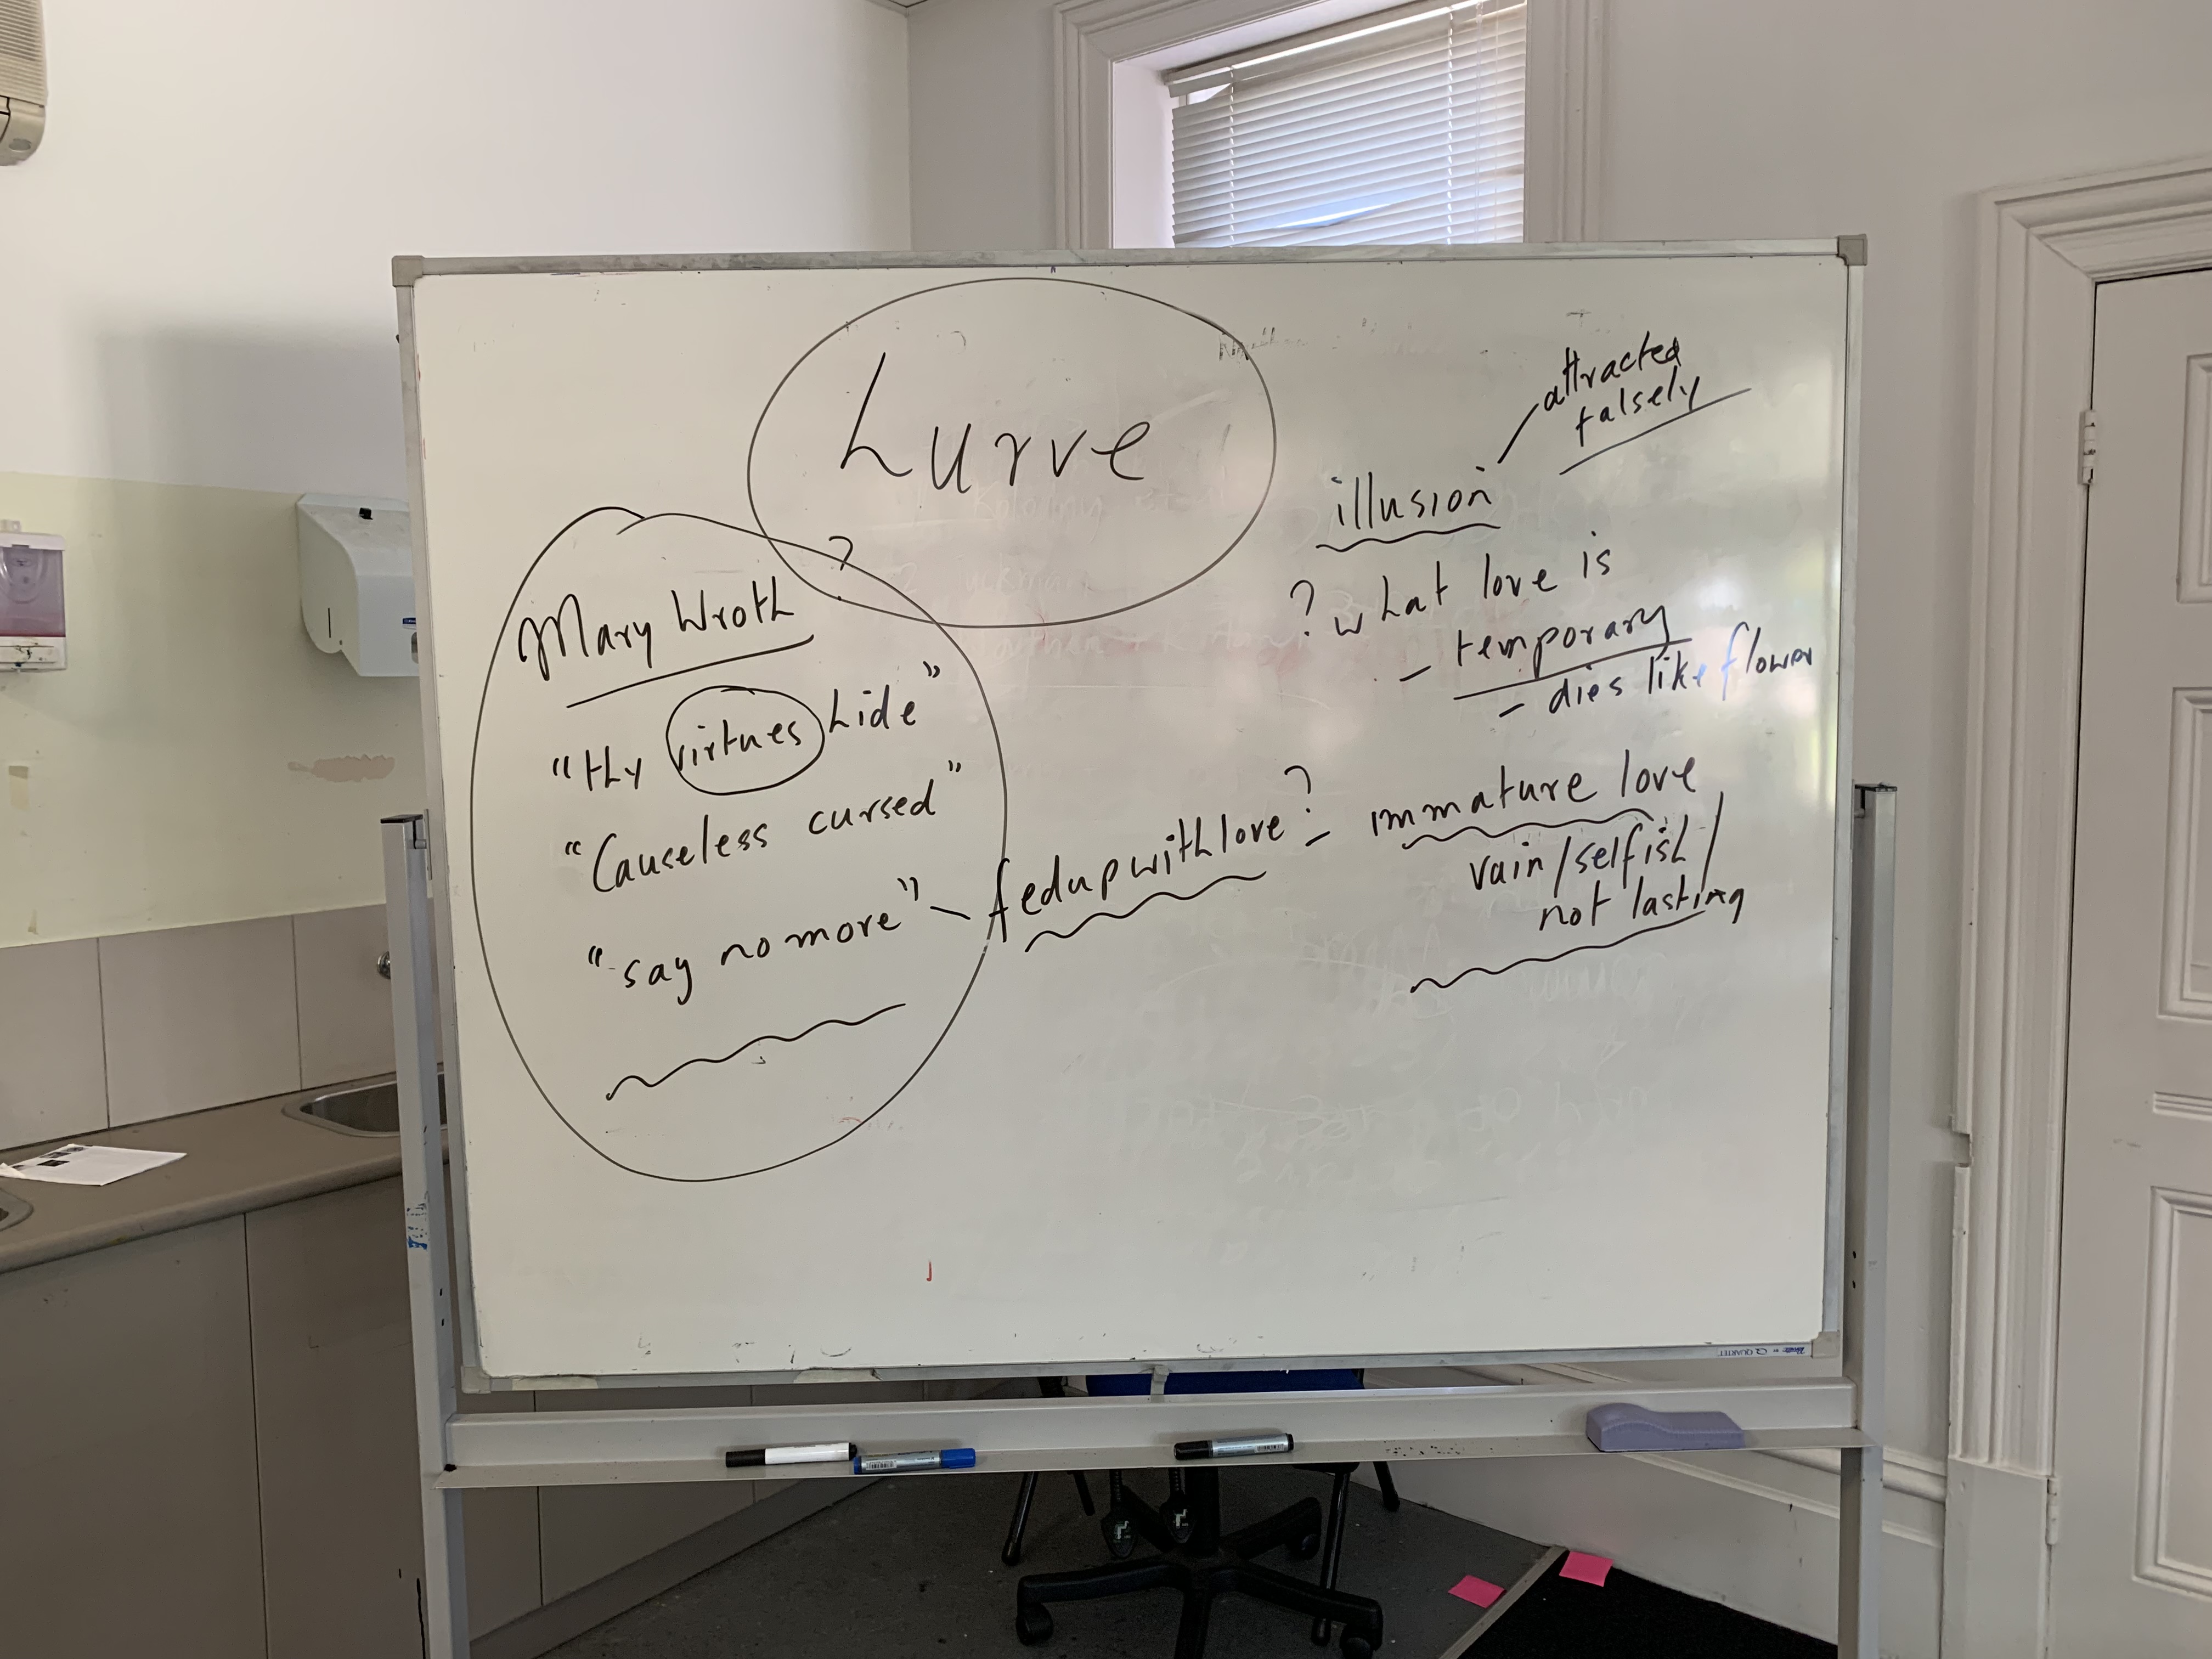 Lurve
?
Mary Wroth
"thy virtues hide"
"Causeless cursed"
"say no more" – fed up with love? –
attracted
falsely
illusion
? what love is
– temporary
– dies like flower
immature love
vain/selfish/
not lasting
QUARTET